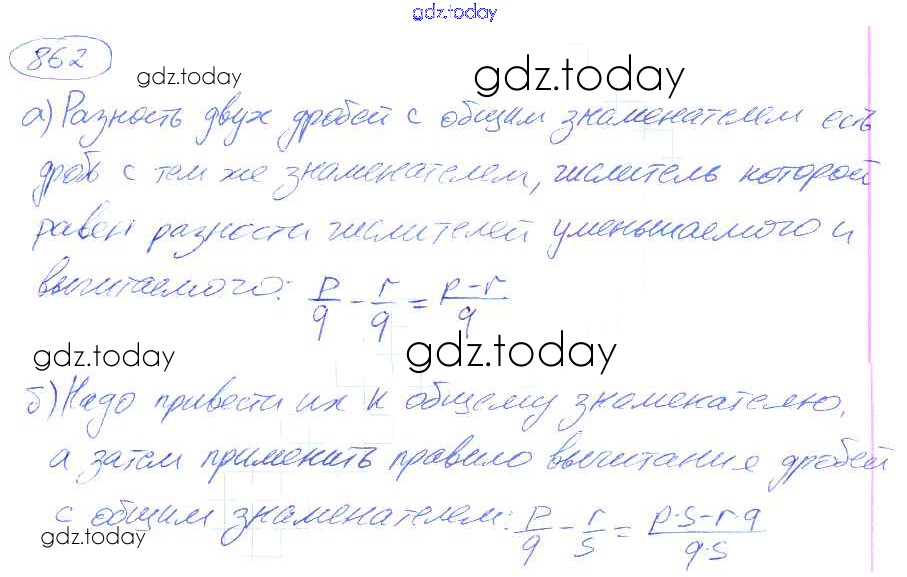 gdz.today
862
gdz.today
gdz.today
а) Разность двух дробей с общим знаменателем есть
дробь с тем же знаменателем, числитель которой
равен разности числителей уменьшаемого и
вычитаемого: p/q - r/q = p-r/q
gdz.today
gdz.today
б) Надо привести их к общему знаменателю,
а затем применить правило вычитания дробей
с общим знаменателем: p/q - r/s = p·s-r·q/q·s
gdz.today
gdz.today